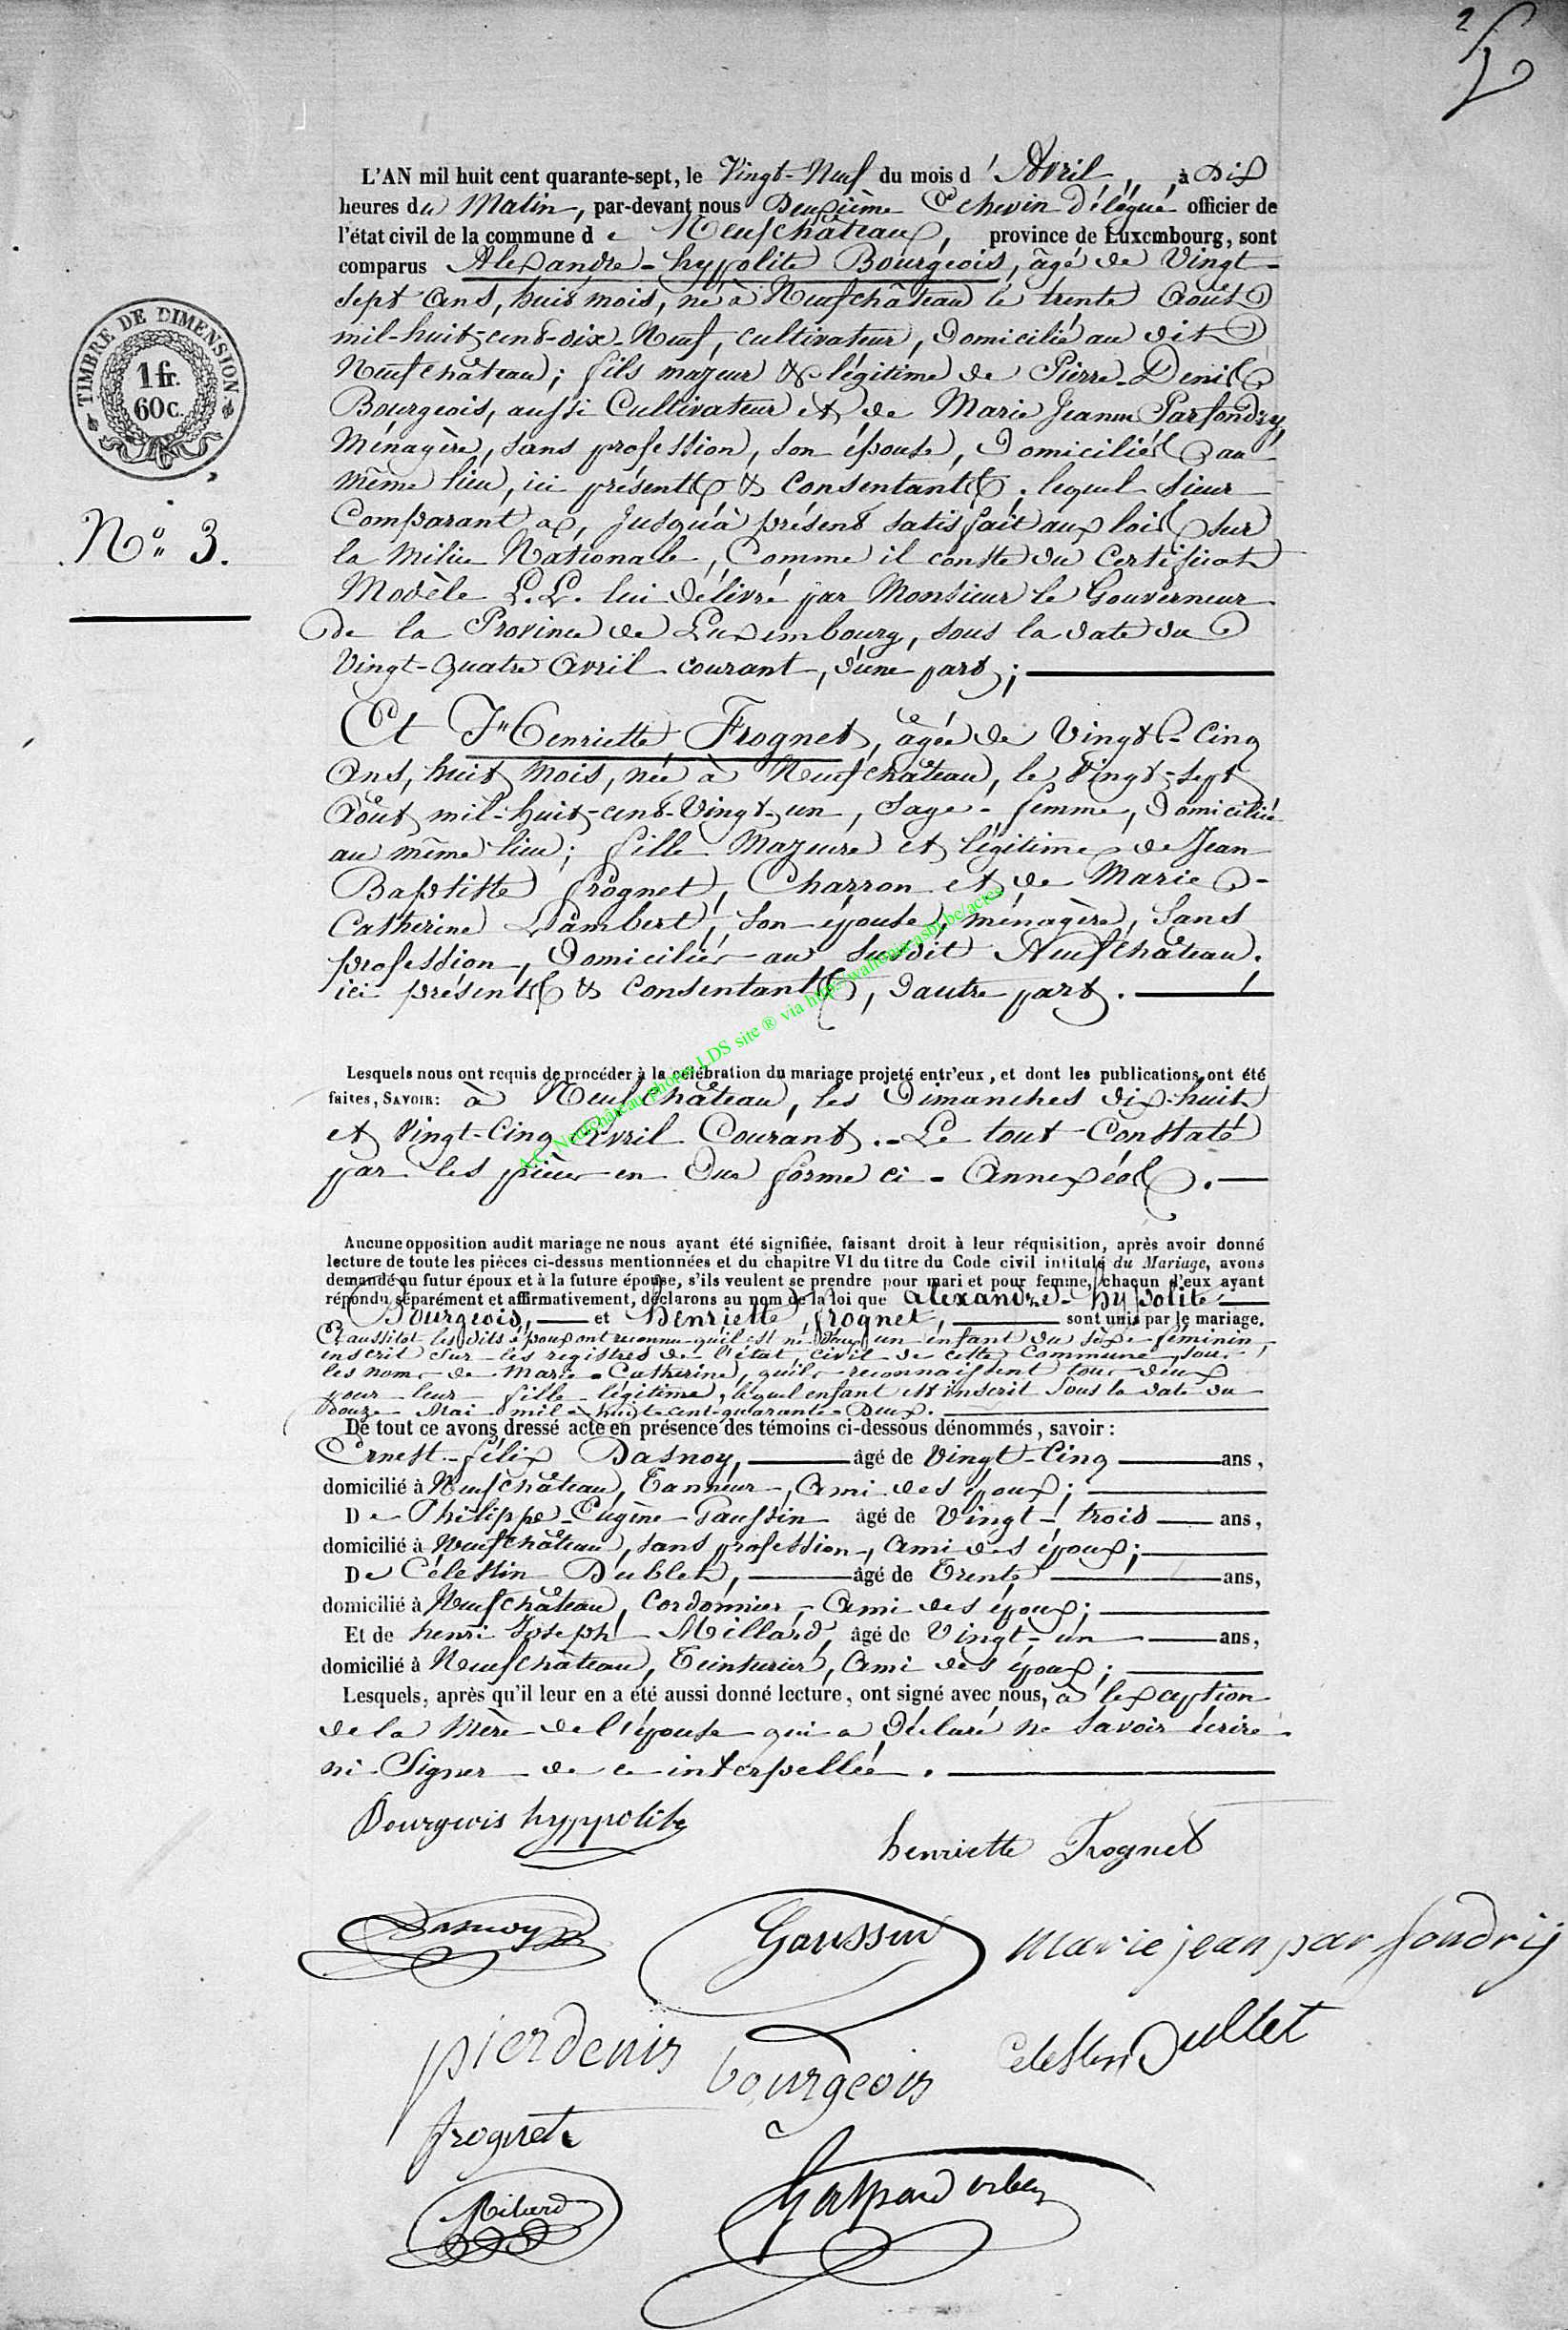 2
L'AN mil huit cent quarante-sept, le Vingt-Neuf du mois d'Avril, à Dix
heures du Matin, par-devant nous Deuxième Echevin Délégué officier de
l'état civil de la commune de Neufchâteau, province de Luxembourg, sont
comparus Alexandre-hyppolite Bourgeois, âgé de Vingt-
sept Ans, huit mois, né à Neufchâteau le trente Août
mil-huit-cent-dix-Neuf, cultivateur, Domicilié au dit
Neufchâteau; fils majeur & légitime de Pierre-Denis
Bourgeois, aussi Cultivateur et de Marie Jeanne Parfondry
Ménagère, sans profession, son épouse, Domiciliés au
même lieu, ici présents & Consentants; lequel sieur
Comparant a, jusqu'à présent satisfait aux lois sur
la Milice Nationale, Comme il conste du Certificat
Modèle L.L. lui délivré par Monsieur le Gouverneur
de la Province de Luxembourg, sous la date du
Vingt-Quatre Avril courant, d'une part;
TIMBRE DE DIMENSION
1 fr.
60 c.
N° 3.
Et Henriette Frognet, âgée de Vingt-Cinq
Ans, huit Mois, née à Neufchâteau, le Vingt-sept
Août mil-huit-cent-Vingt-un, Sage-femme, Domiciliée
au même lieu; fille Majeure et légitime de Jean
Baptiste frognet, Charron et de Marie-
Catherine Lambert, son épouse, ménagère, Sans
profession, Domiciliés au susdit Neufchâteau.
ici présents & Consentants, d'autre part.
A.C. Neufchâteau photos LDS site ® via
Lesquels nous ont requis de procéder à la célébration du mariage projeté entr'eux, et dont les publications ont été
faites, SAVOIR: à Neufchâteau, les Dimanches dix-huit
et Vingt-Cinq Avril Courant.- Le tout Constaté
par les pièces en Due forme ci-Annexées.
Aucune opposition audit mariage ne nous ayant été signifiée, faisant droit à leur réquisition, après avoir donné
lecture de toute les pièces ci-dessus mentionnées et du chapitre VI du titre du Code civil intitulé du Mariage, avons
demandé au futur époux et à la future épouse, s'ils veulent se prendre pour mari et pour femme, chacun d'eux ayant
répondu séparément et affirmativement, déclarons au nom de la loi que alexandre-hyppolite
Bourgeois, et Henriette frognet, sont unis par le mariage.
Et aussitot les dits époux ont reconnu qu'il est né d'eux un enfant du sèxe féminin
inscrit sur les registres de l'état civil de cette Commune, sous
les noms de Marie-Catherine, qu'ils reconnaissent tous deux
pour leur fille légitime, lequel enfant est inscrit sous la date du
Douze Mai mil-huit-cent-quarante-Deux.
De tout ce avons dressé acte en présence des témoins ci-dessous dénommés, savoir:
Ernest-félix Dasnoy, âgé de Vingt-Cinq ans,
domicilié à Neufchâteau, Tanneur, Ami des époux;
De Philippe-Eugène Gaussin âgé de Vingt-trois ans,
domicilié à Neufchâteau, sans profession, Ami des époux;
De Célestin Dublet, âgé de Trente ans,
domicilié à Neufchâteau, Cordonnier, Ami des époux;
Et de henri Joseph Millard, âgé de Vingt-un ans,
domicilié à Neufchâteau, Teinturier, Ami des époux;
Lesquels, après qu'il leur en a été aussi donné lecture, ont signé avec nous, à l'exception
de la Mère de l'épouse qui a Déclaré ne savoir écrire
ni Signer de ce interpellée.
Bourgeois hyppolite
henriette Frognet
Dasnoy
Gaussin
marie jean parfondrij
pierdenis bourgeois
Celestin Dullet
frognet
Milard